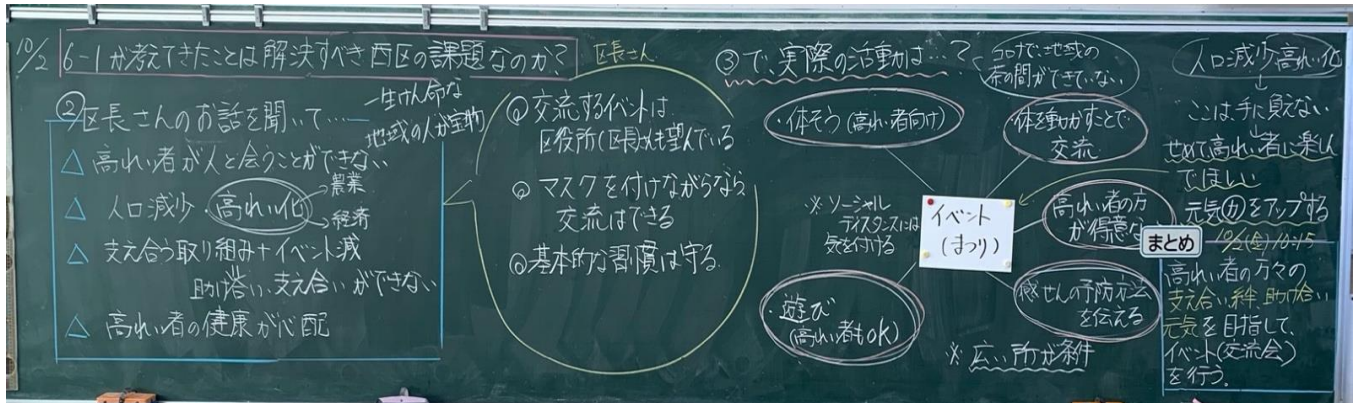 10/2
6-1が考えてきたことは解決すべき西区の課題なのか?
②区長さんのお話を聞いて……
一生けん命な
地域の人が宝物
△ 高れい者が人と会うことができない
△ 人口減少・高れい化
農業
経済
△ 支え合う取り組み+イベント減
助け合い、支え合いができない
△ 高れい者の健康が心配
区長さん
交流するイベントは
区役所(区長さん)も望んでいる
マスクを付けながらなら
交流はできる
基本的な習慣は守る
③で、実際の活動は…?
コロナで、地域の
茶の間ができていない
・体そう(高れい者向け)
体を動かすことで
交流
※ソーシャル
ディスタンスには
気を付ける
イベント
(まつり)
高れい者の方
が得意な
・遊び
(高れい者もOK)
感せんの予防方法
を伝える
※広い所が条件
人口減少高れい化
↓
ここは手に負えない
↓
せめて高れい者に楽しん
でほしい
元気力をアップする
まとめ
10/2(金)10:15
高れい者の方々の
支え合い、絆、助け合い
元気を目指して、
イベント(交流会)
を行う。